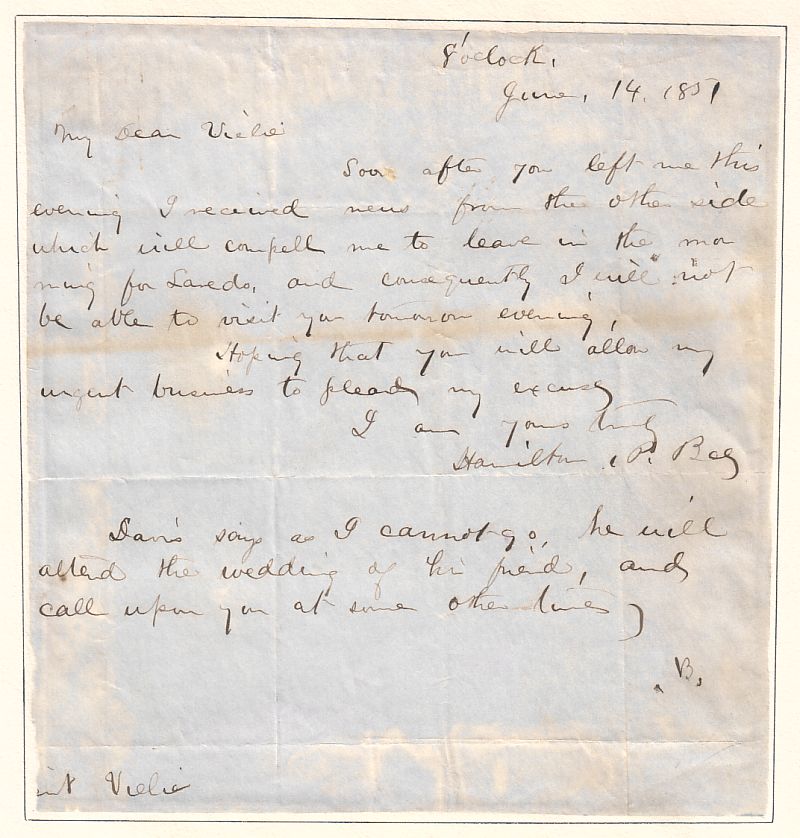 8 o'clock,
June, 14. 1851
My Dear Vielie
Soon after you left me this
evening I received news from the other side
which will compell me to leave in the mor
ning for Laredo, and consequently I will not
be able to visit you tomorrow evening,
Hoping that you will allow my
urgent business to plead my excuse
I am yours truly
Hamilton P. Bee
Davis says as I cannot go, he will
attend the wedding of his friend, and
call upon you at some other time
B.
Vielie